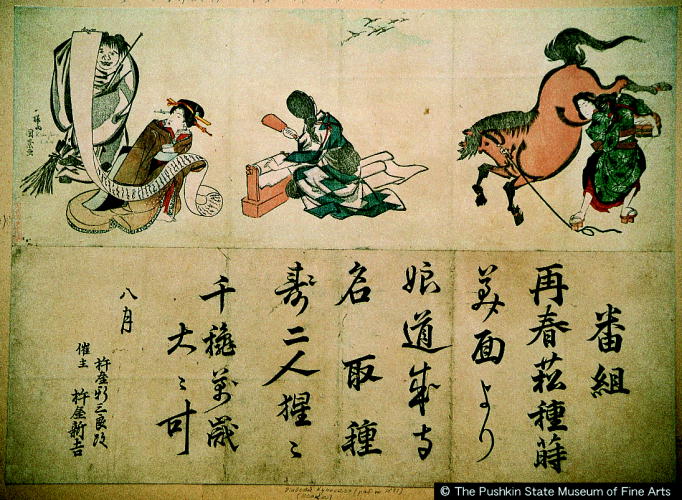 番組
再春菘種蒔
英面より
娘道成寺
名取種
寿二人猩〻
千穐萬歳
大〻叶
八月
杵屋新三良改
催主 杵屋新吉
国芳画
© The Pushkin State Museum of Fine Arts